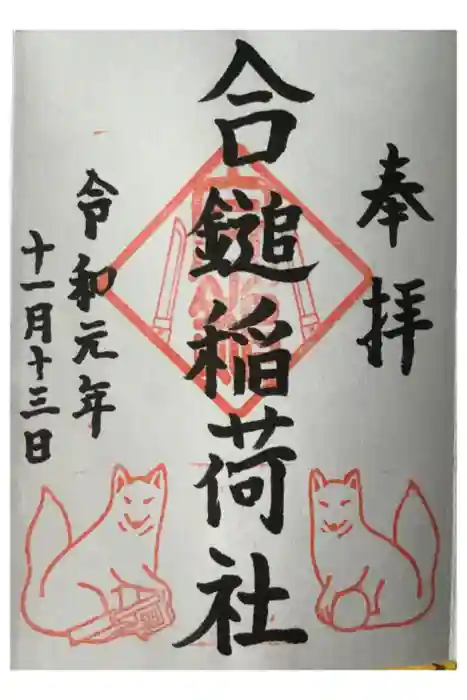 奉拝
合鎚稲荷社
令和元年
十一月十三日